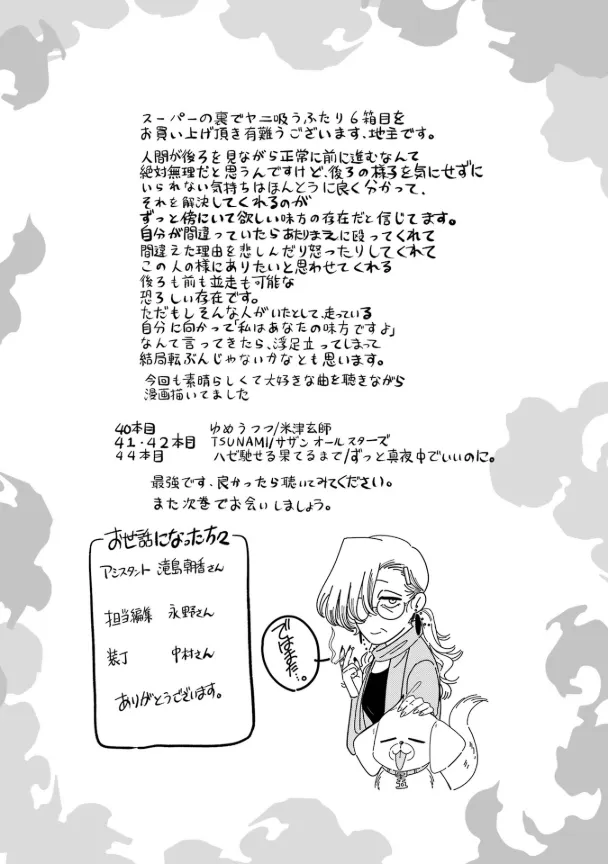 スーパーの裏でヤニ吸うふたり6箱目を
お買い上げ頂き有難うございます、地主です。
人間が後ろを見ながら正常に前に進むなんて
絶対無理だと思うんですけど、後ろの様子を気にせずに
いられない気持ちはほんとうに良く分かって、
それを解決してくれるのが
ずっと傍にいて欲しい味方の存在だと信じてます。
自分が間違っていたらあたりまえに殴ってくれて
間違えた理由を悲しんだり怒ったりしてくれて
この人の様にありたいと思わせてくれる
後ろも前も並走も可能な
恐ろしい存在です。
ただもしそんな人がいたとして、走っている
自分に向かって「私はあなたの味方ですよ」
なんて言ってきたら、浮足立ってしまって
結局転ぶんじゃないかなとも思います。
今回も素晴らしくて大好きな曲を聴きながら
漫画描いてました
40本目 ゆめうつつ/米津玄師
41・42本目 TSUNAMI/サザンオールスターズ
44本目 ハゼ馳せる果てるまで/ずっと真夜中でいいのに。
最強です、良かったら聴いてみてください。
また次巻でお会いしましょう。
お世話になった方々
アシスタント 滝島朝香さん
担当編集 永野さん
装丁 中村さん
ありがとうございます。
ではまた…。